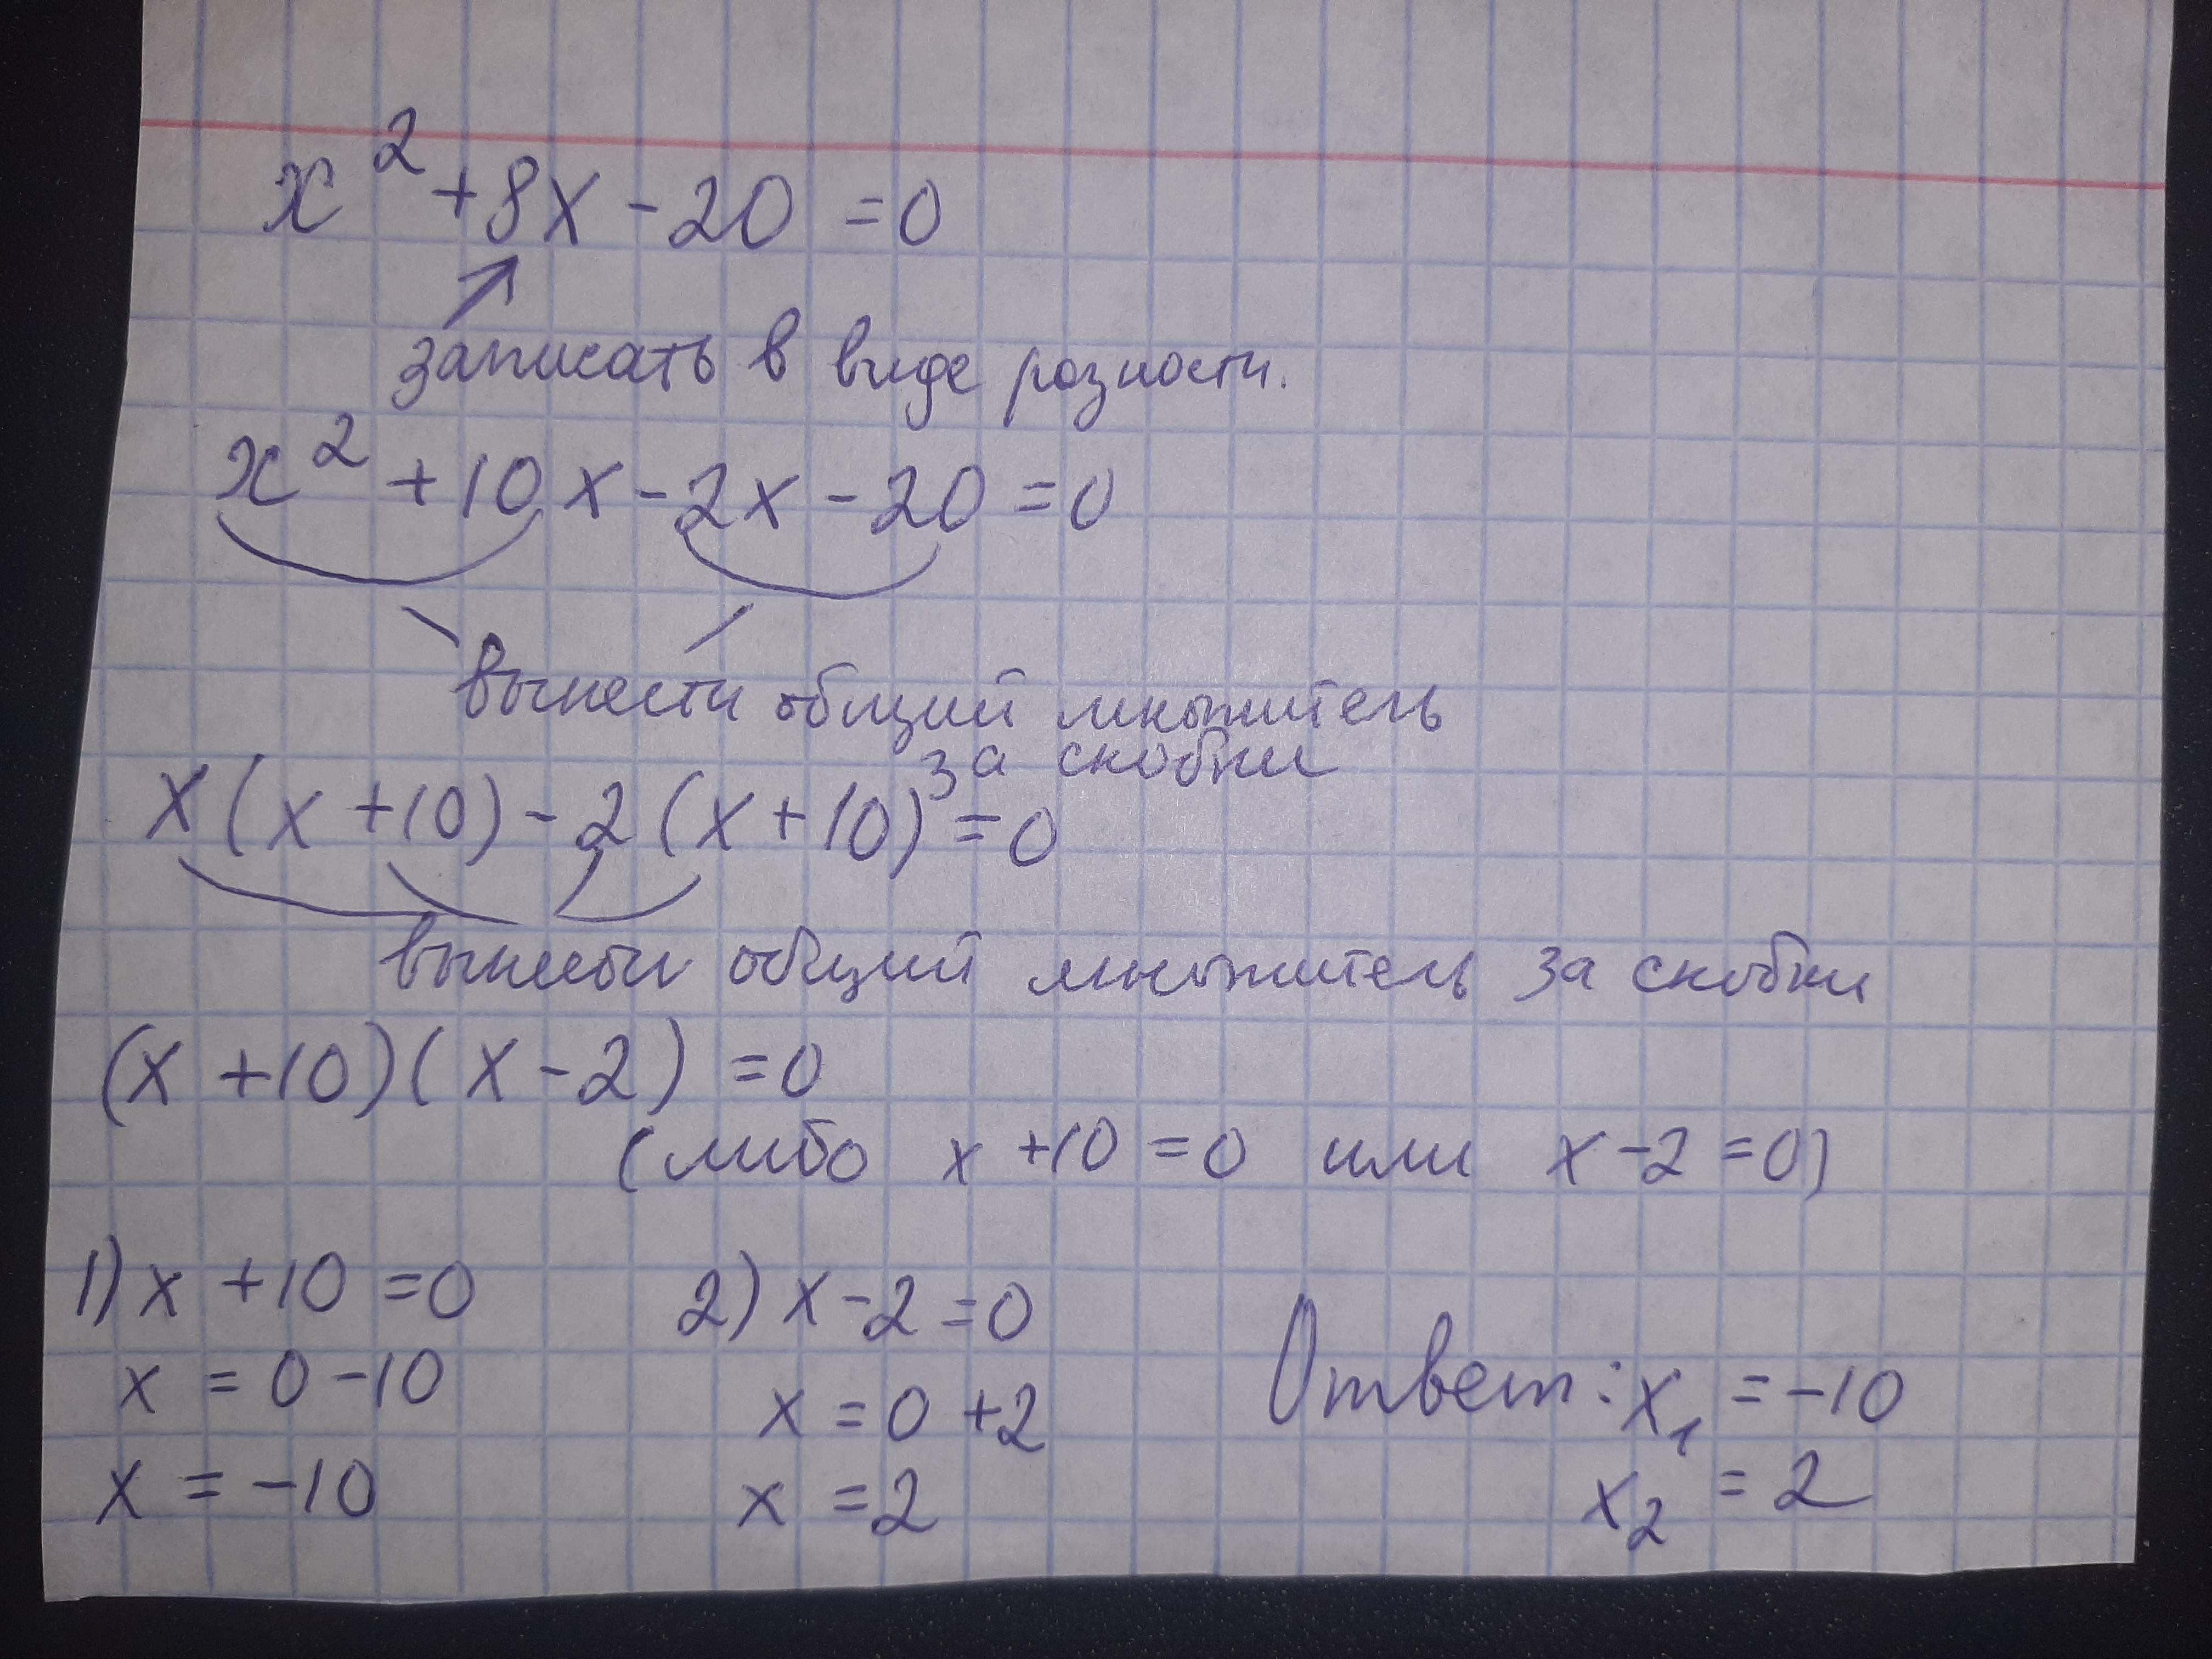 x² + 8x - 20 = 0
записать в виде разности.
x² + 10x - 2x - 20 = 0
вынести общий множитель
за скобки
x(x + 10) - 2(x + 10) = 0
вынести общий множитель за скобки
(x + 10)(x - 2) = 0
(либо x + 10 = 0 или x - 2 = 0)
1) x + 10 = 0 2) x - 2 = 0
x = 0 - 10 x = 0 + 2 Ответ: x₁ = -10
x = -10 x = 2 x₂ = 2